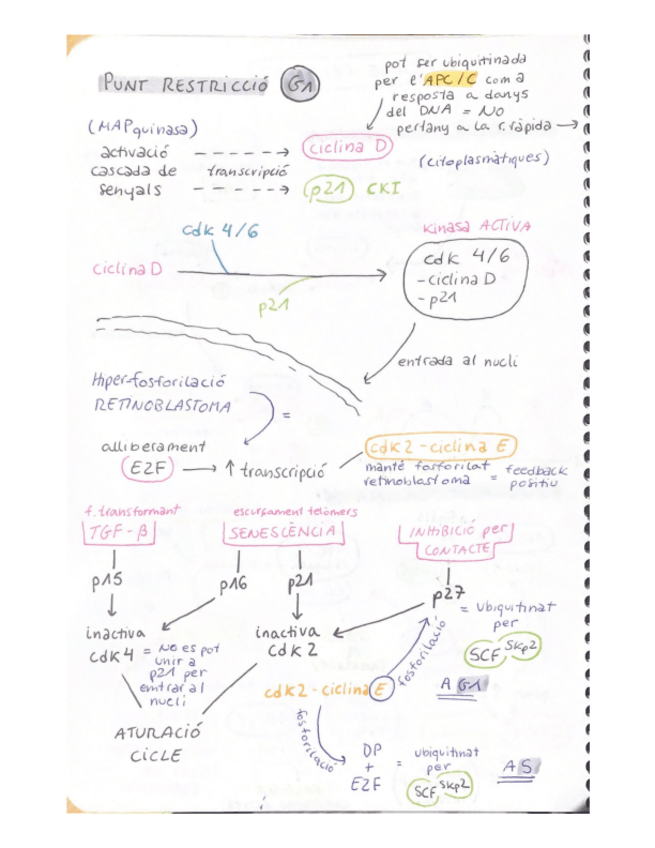 PUNT RESTRICCIÓ G1
pot ser ubiquitinada
per l'APC/C com a
resposta a danys
del DNA = NO
pertany a la r.ràpida →
(MAPquinasa)
activació
cascada de
senyals
transcripció
ciclina D
p21 CKI
(citoplasmàtiques)
cdk 4/6
ciclina D
p21
Kinasa ACTIVA
cdk 4/6
- ciclina D
- p21
entrada al nucli
Hiper-fosforilació
RETINOBLASTOMA
=
alliberament
E2F → ↑ transcripció
cdk2 - ciclina E
manté fosforilat
retinoblastoma
= feedback
positiu
f. transformant
TGF-β
escurçament telòmers
SENESCÈNCIA
INHIBICIÓ per
CONTACTE
p15
p16
p21
p27
= Ubiquitinat
per
SCF Skp2
A G1
inactiva
cdk4
= NO es pot
unir a
p21 per
entrar al
nucli
inactiva
cdk2
fosforilació
cdk2 - ciclina E
ATURACIÓ
CICLE
fosforilació
DP
+
E2F
= ubiquitinat
per
SCF Skp2
A S